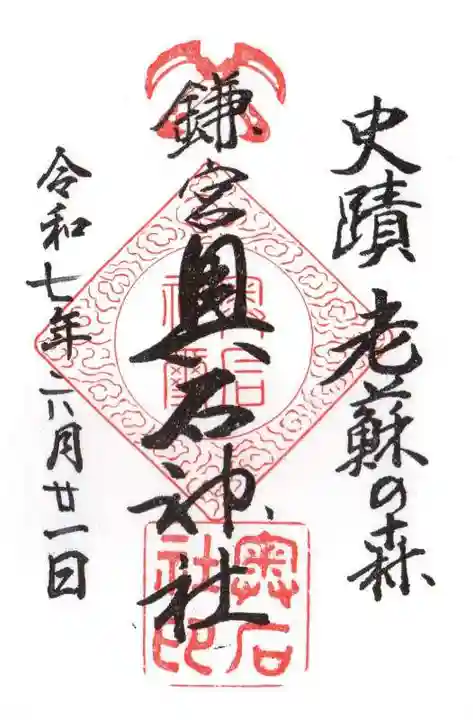 史蹟 老蘇の森
鎌宮奥石神社
令和七年六月廿一日
奥石
社印